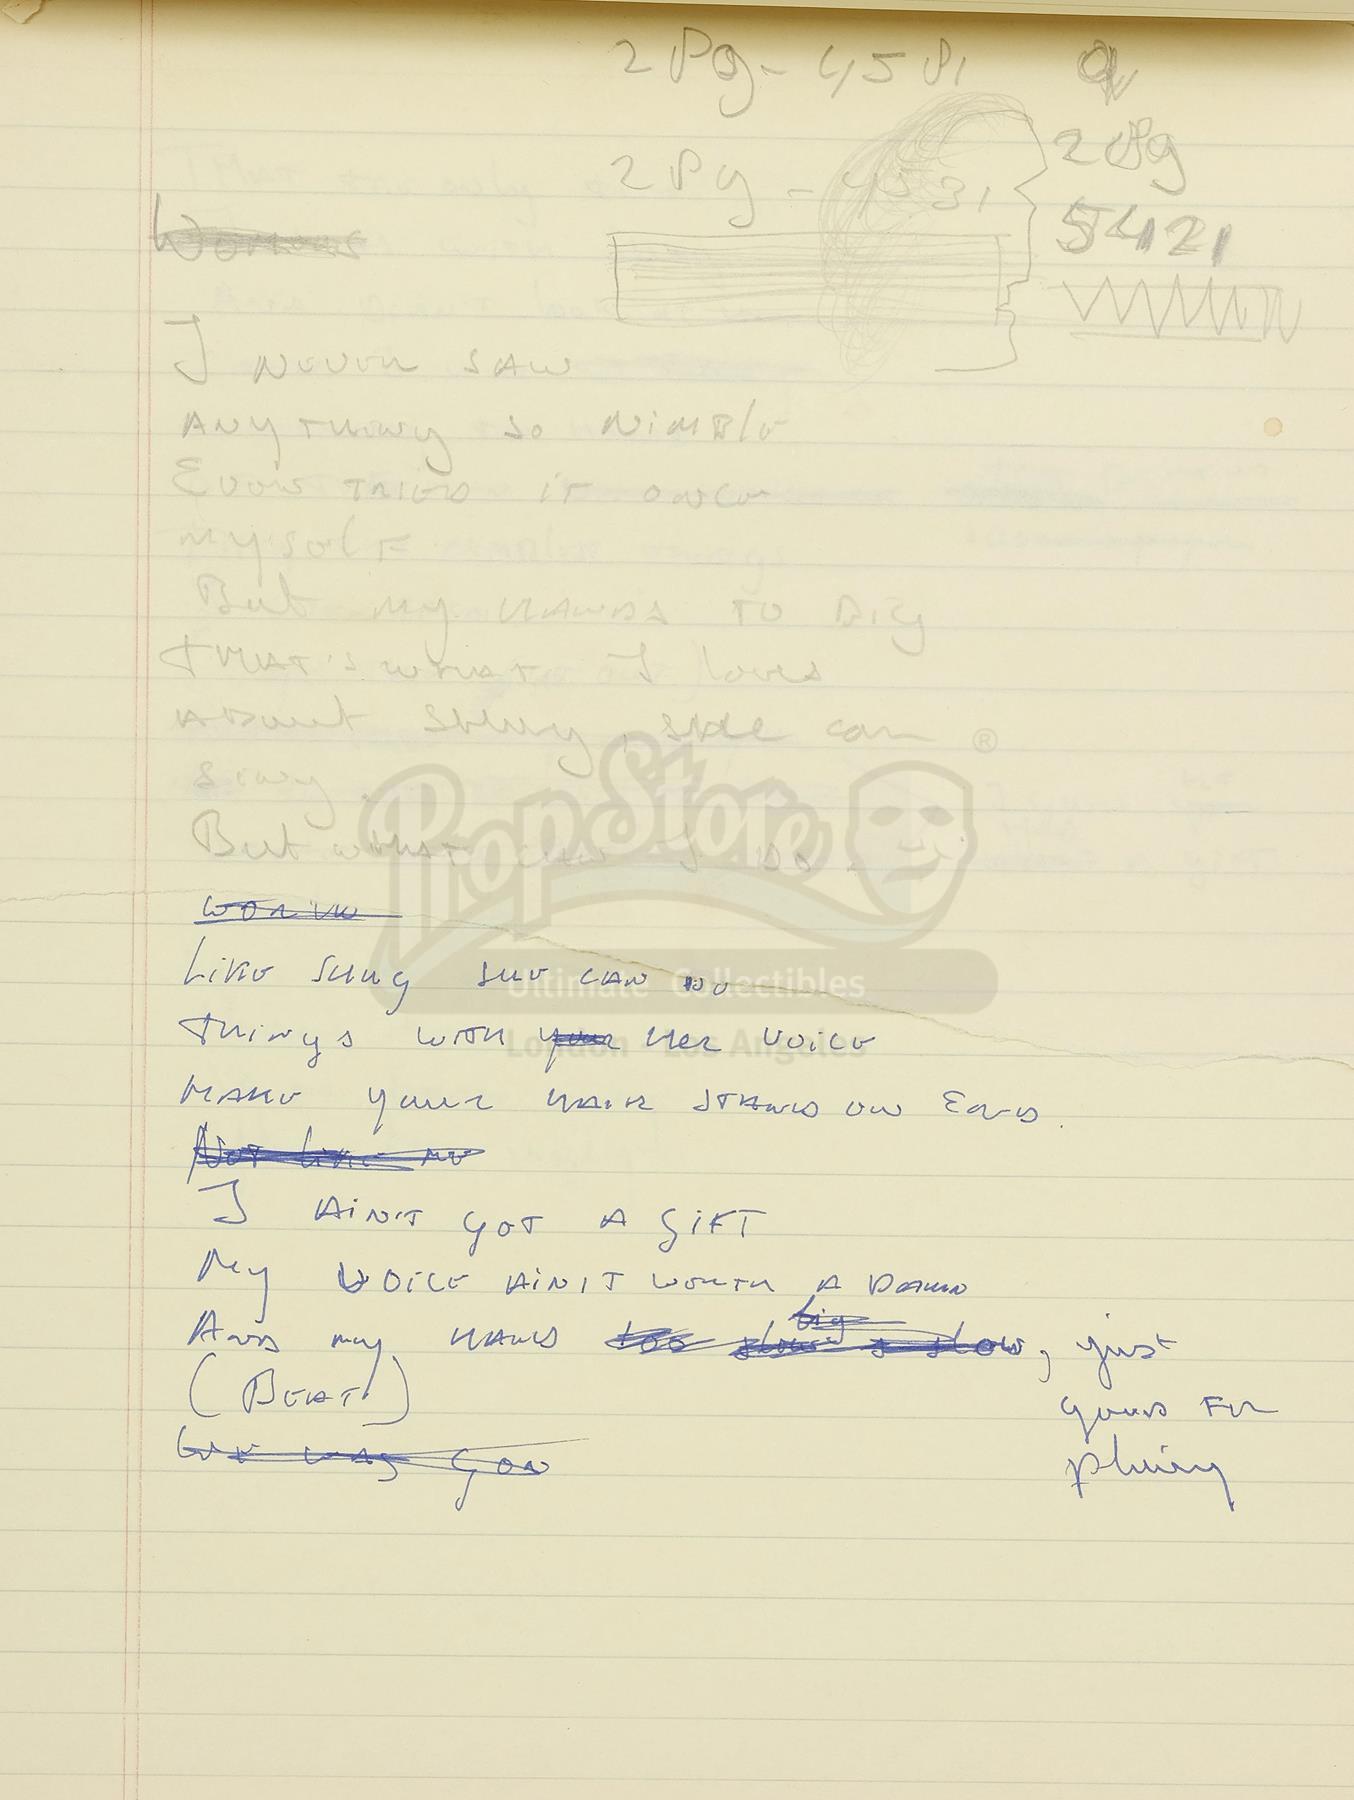 2 Pg - 4581
2 Pg
2 Pg - 4531
5421
I never saw
ANYTHING SO NIMBLE
Even TRIED IT ONCE
MYSELF
But my HANDS TO BIG
THAT'S WHAT I loves
About she can
Sing.
But WHAT CAN I DO.
LIKE she CAN DO
THINGS WITH your Her VOICE
MAKE your HAIR STAND ON END.
NOT like me
I AIN'T GOT A GIFT
My VOICE AIN'T WORTH A DAMN
big
AND my HAND too slow, just
(BEAT)
good FOR
PropStore ®
Ultimate Collectibles
London - Los Angeles